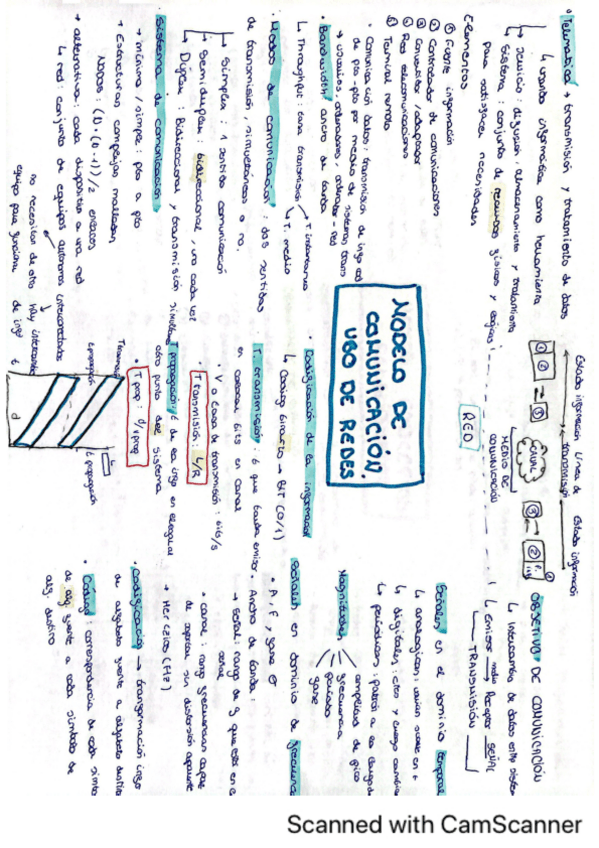 • Telemática → transmisión y tratamiento de datos
↳ usando informática como herramienta
→ Servicio: difusión, almacenamiento y tratamiento
↳ Sistema: conjunto de recursos físicos y
para satisfacer necesidades
Elementos
① Fuente información
② Controlador de comunicaciones
③ Convertidor/adaptador
④ Red telecomunicaciones
⑤ Terminal remoto
• Comunicación datos: transmisión de
de pto-pto por medio de sistemas trans
→ usuarios, ordenadores, ordenador-red
• Bandwidth: ancho de banda
↳ Throughput: transmisión
T. instantanea
T. medio
• Modos de comunicación: dos sentidos
de transmisión, simultáneos o no.
→ Simplex: 1 sentido comunicación
→ Semiduplex: bidireccional, una cada vez
→ Dúplex: Bidireccional y transmisión
• Sistema de comunicación
→ mínima/simple: pto a pto
→ Estructuras complejas malladas
Nodos: (n·(n-1))/2 enlaces
→ alternativa: cada dispositivo a una red.
↳ red: conjunto de equipos autónomos interconectados
no necesitan de otro
equipo para funcionar
intercambio
de info
Estado información
Línea de transmisión
Estado información
① ②
③
CANAL
③
②
MEDIO DE
COMUNICACIÓN
RED
MODELO DE
COMUNICACIÓN.
USO DE REDES
• Codificación de la información
↳ Código binario → BIT (0/1)
T. transmisión: t que tarda emisor
en colocar bits en canal
• V o tasa de transmisión: bits/s
• T transmisión: L/R
T propagación: t de la info en llegar al
otro punto del sistema
• T prop: d/vprop
Transmisión
t propagación
L
t propagación
t
d
OBJETIVO DE COMUNICACIÓN
↳ Intercambio de datos entre
↳ Emisor → Receptor SEÑAL
medio
TRANSMISIÓN
Señales en el dominio temporal
↳ analógicas: varían suave en t
↳ digitales: cte,
↳ periódicas:
Magnitudes
amplitud de pico
frecuencia
periodo
fase
Señales en dominio de frecuencia
• A, F, y fase cte
Ancho de banda:
→ señal: rango de f que está en
señal
• canal: rango frecuencias capaz
de operar sin distorsión
→ Hercios (Hz)
• Codificación → transformación info
de alfabeto fuente a alfabeto
• Código: correspondencia de cada
de alf. fuente a cada símbolo de
alf. destino
Scanned with CamScanner